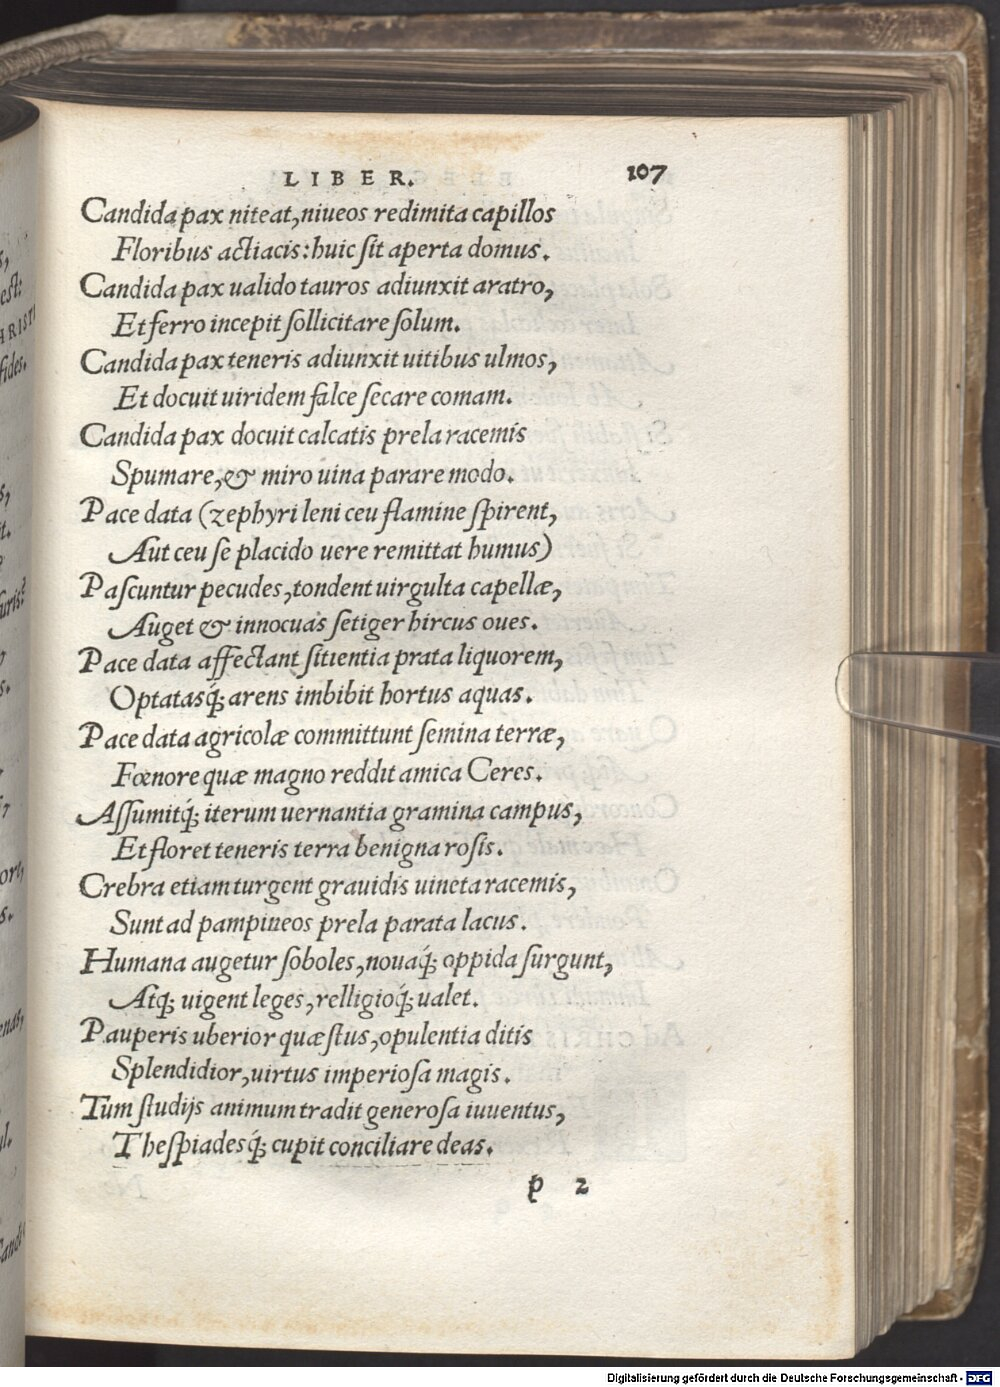 LIBER. 107
Candida pax niteat, niueos redimita capillos
Floribus actiacis: huic sit aperta domus.
Candida pax ualido tauros adiunxit aratro,
Et ferro incepit sollicitare solum.
Candida pax teneris adiunxit uitibus ulmos,
Et docuit uiridem falce secare comam.
Candida pax docuit calcatis prela racemis
Spumare, & miro uina parare modo.
Pace data (zephyri leni ceu flamine spirent,
Aut ceu se placido uere remittat humus)
Pascuntur pecudes, tondent uirgulta capellæ,
Auget & innocuas setiger hircus oues.
Pace data affectant sitientia prata liquorem,
Optatasq́; arens imbibit hortus aquas.
Pace data agricolæ committunt semina terræ,
Fœnore quæ magno reddit amica Ceres.
Assumitq́; iterum uernantia gramina campus,
Et floret teneris terra benigna rosis.
Crebra etiam turgent grauidis uineta racemis,
Sunt ad pampineos prela parata lacus.
Humana augetur soboles, nouaq́; oppida surgunt,
Atq; uigent leges, relligioq́; ualet.
Pauperis uberior quæstus, opulentia ditis
Splendidior, uirtus imperiosa magis.
Tum studijs animum tradit generosa iuuentus,
Thespiadesq́; cupit conciliare deas.
p 2
Digitalisierung gefördert durch die Deutsche Forschungsgemeinschaft - DFG